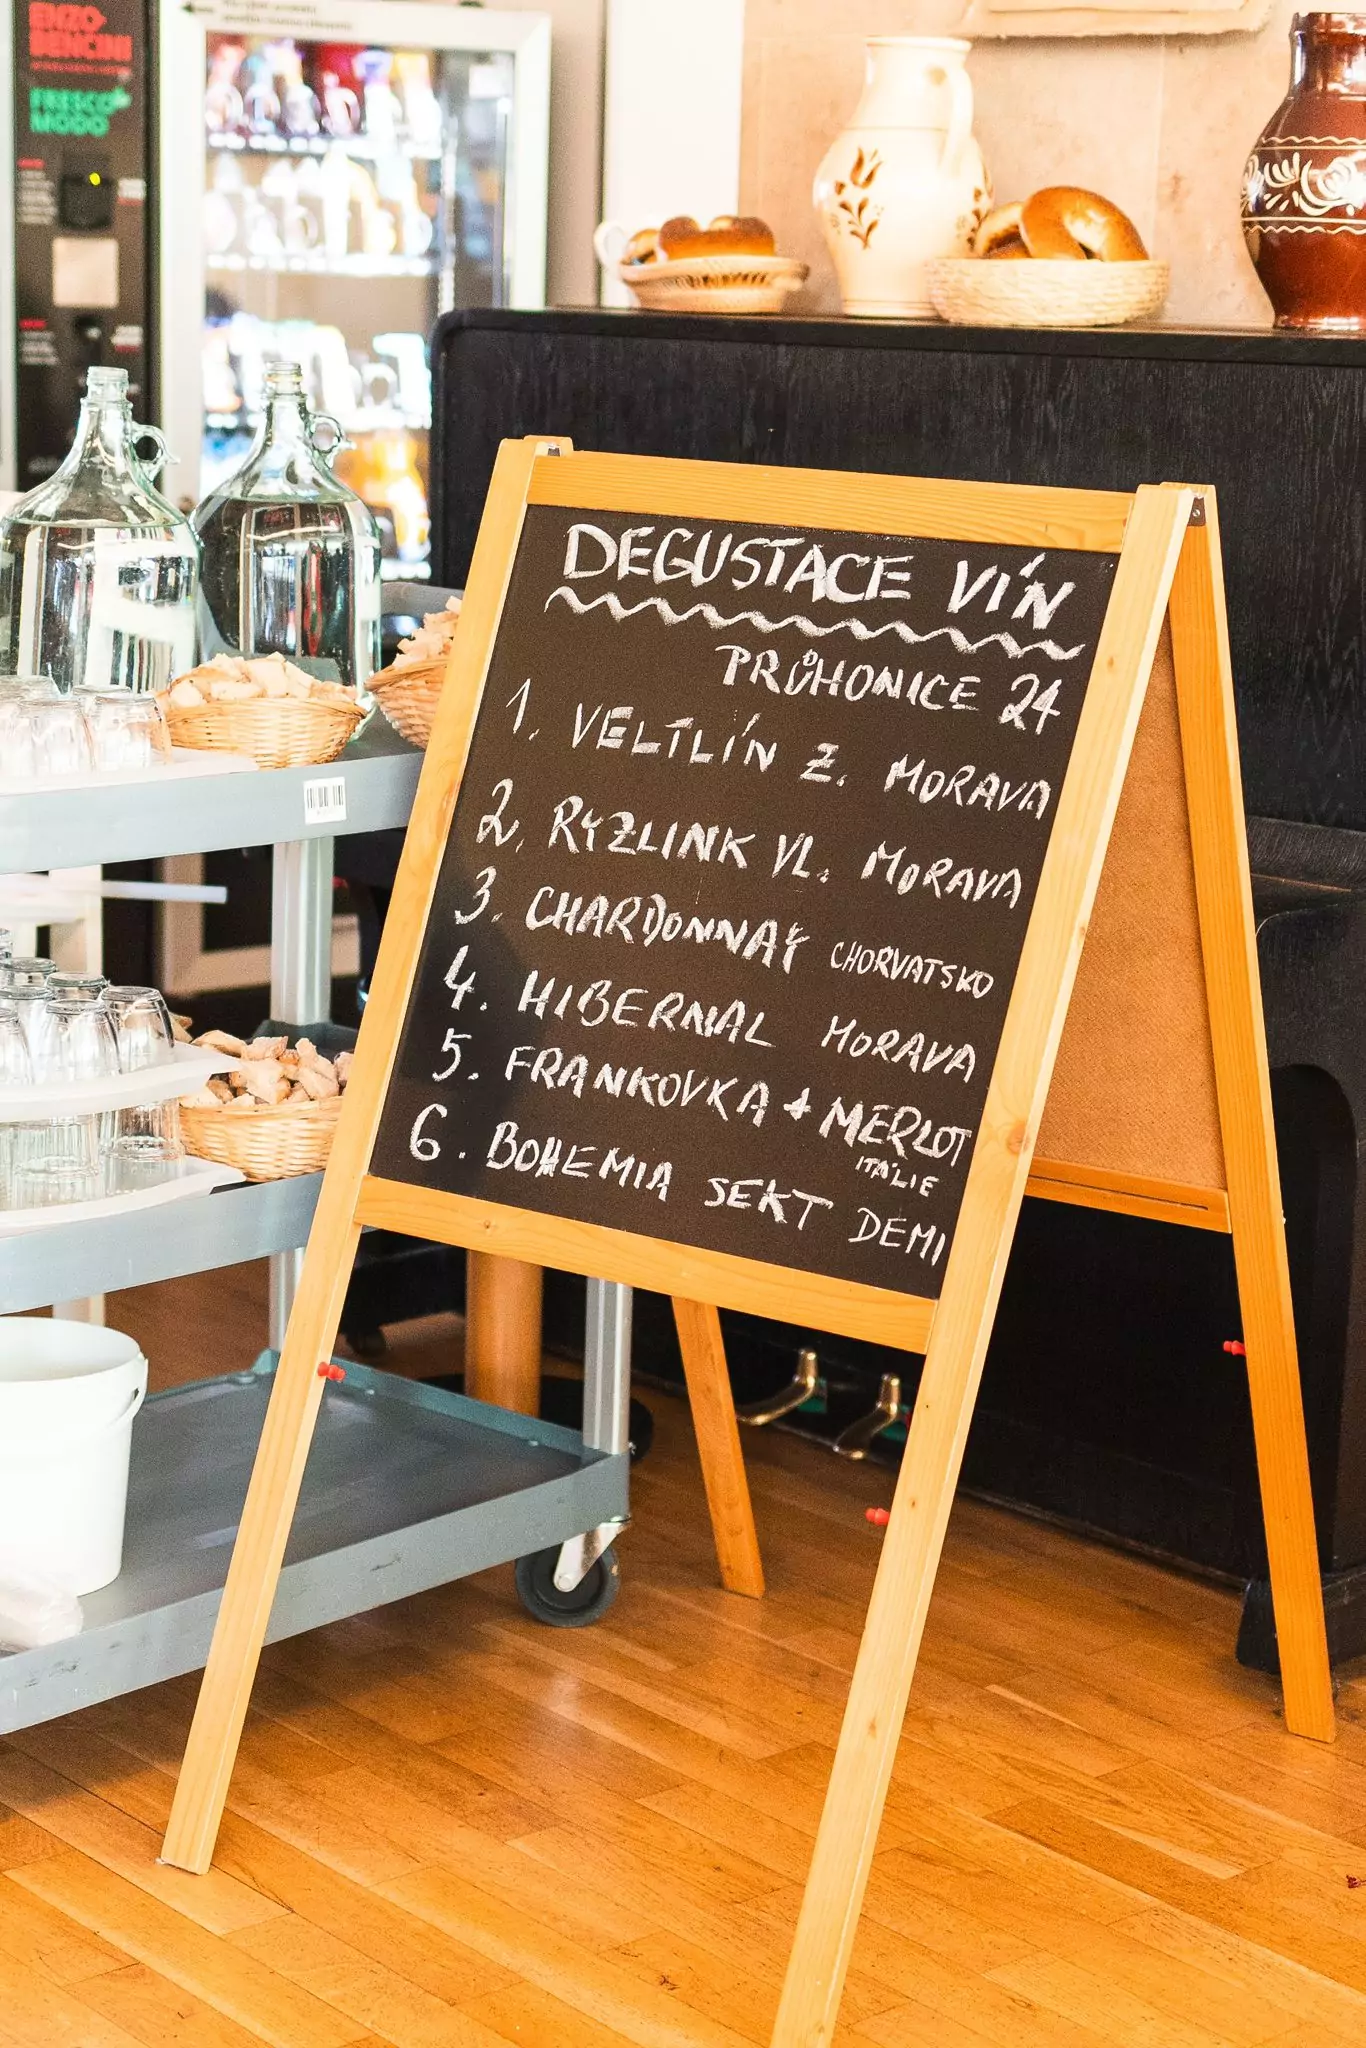 ENZO-
BENCINI
FRESCO
MODO
DEGUSTACE VÍN
PRŮHONICE 24
1. VELTLÍN Z. MORAVA
2. RYZLINK VL. MORAVA
3. CHARDONNAY CHORVATSKO
4. HIBERNAL MORAVA
5. FRANKOVKA + MERLOT
ITÁLIE
6. BOHEMIA SEKT DEMI